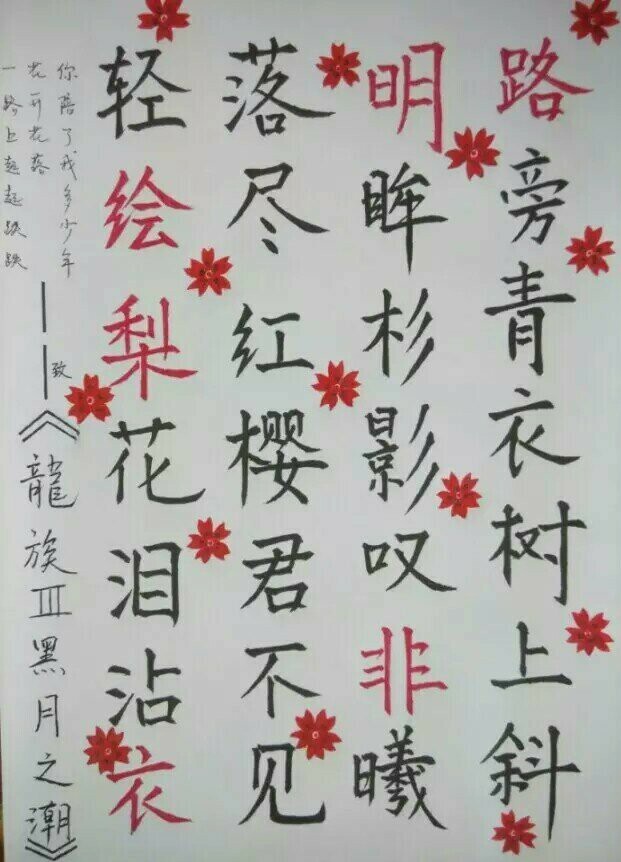 路旁青衣树上斜
明眸杉影叹非曦
落尽红樱君不见
轻绘梨花泪沾衣
你陪了我多少年
花开花落
一路上起起跌跌
——致
《龍族Ⅲ黑月之潮》